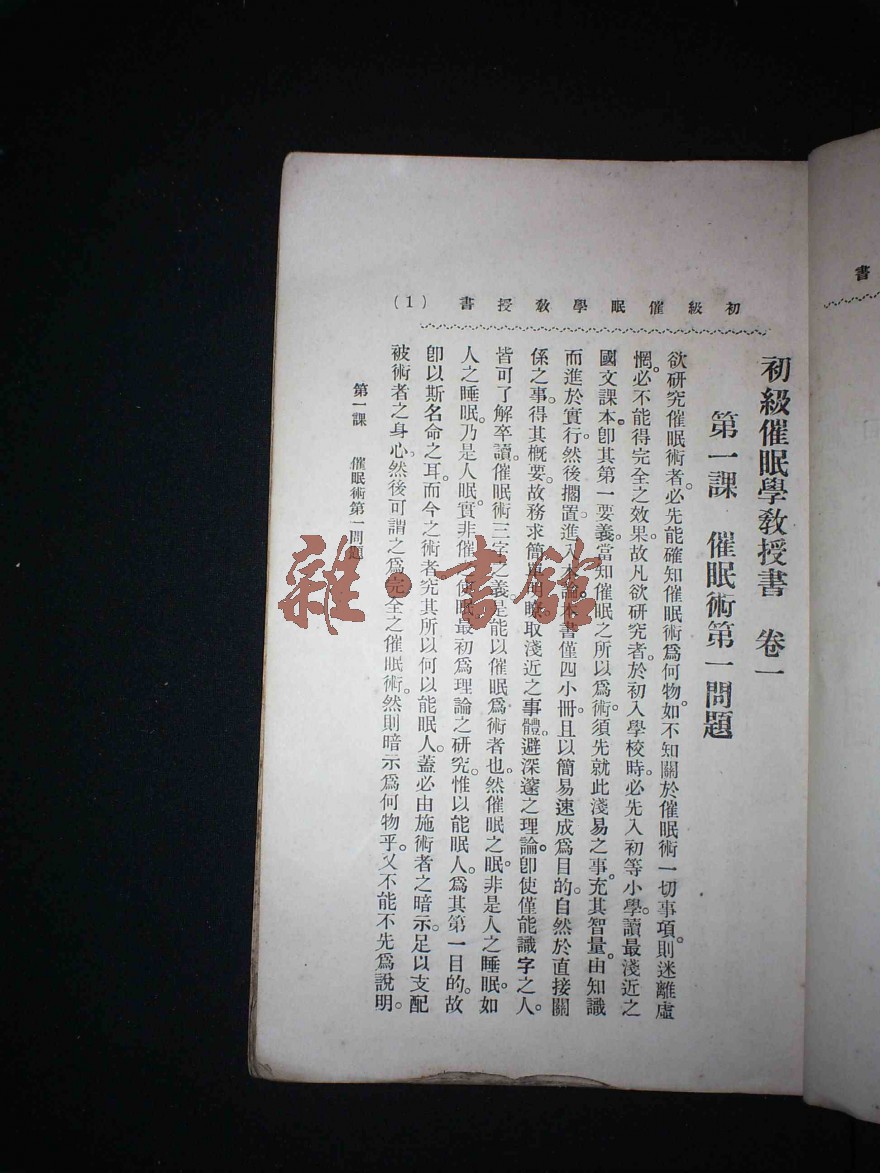 初級催眠學教授書 (1)
初級催眠學教授書 卷一
第一課 催眠術第一問題
欲研究催眠術者。必先能確知催眠術爲何物。如不知關於催眠術一切事項。則迷離虛
惘。必不能得完全之效果。故凡欲研究者。於初入學校時。必先入初等小學。讀最淺近之
國文課本。卽其第一要義。當知催眠之所以爲術。須先就此淺易之事。充其智量。由知識
而進於實行。然後擱置進入本論。本書僅四小冊。且以簡易速成爲目的。自然於直接關
係之事。得其槪要。故務求簡單明瞭。取淺近之事體。避深邃之理論。卽使僅能識字之人。
皆可了解卒讀。催眠術三字之義。是能以催眠爲術者也。然催眠之眠。非是人之睡眠。如
人之睡眠。乃是人眠。實非催眠。使眠最初爲理論之研究。惟以能眠人。爲其第一目的。故
卽以斯名命之耳。而今之術者。究其所以何以能眠人。蓋必由施術者之暗示。足以支配
被術者之身心。然後可謂之爲完全之催眠術。然則暗示爲何物乎。又不能不先爲說明。
第一課 催眠術第一問題
雜·書館
書